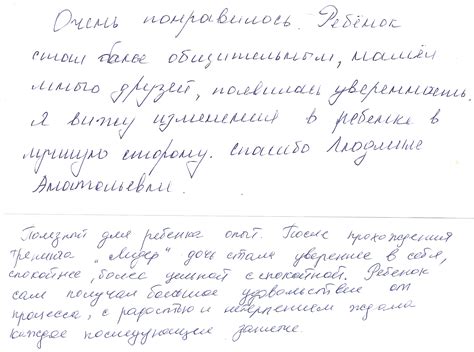 Очень понравилось. Ребёнок
стал более общительным, нашёл
много друзей, появилась уверенность.
Я вижу изменения в ребенке в
лучшую сторону. Спасибо Людмиле
Анатольевне.
Полезный для ребенка опыт. После прохождения
тренинга "Лидер" дочь стала увереннее в себе,
спокойнее, более и спокойной. Ребенок
сам получал большое удовольствие от
процесса, с радостью и нетерпением ждала
каждое последующее занятие.